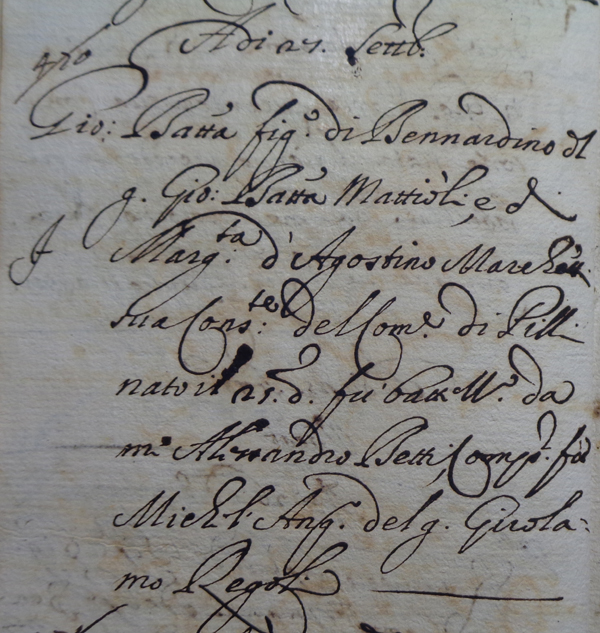 Adi 25. Settb.
Gio: Batta fig.º di Bernardino dl
q. Gio: Batta Mattioli, e di
Marg.ta d'Agostino Marchetti
sua Cons.te del Com.e di Pilli
nato il 25. d. fù batt.º da
me Alessandro Betti, Comp.e fù
Michel' Ang. del q. Girola-
mo Regoli